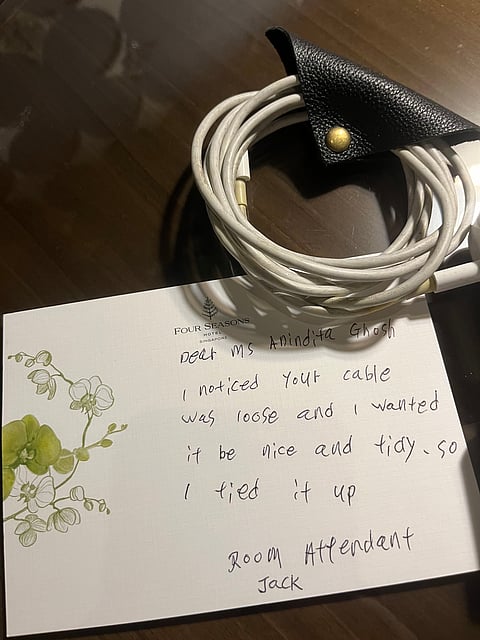 FOUR SEASONS
HOTEL
SINGAPORE
Dear Ms Anindita Ghosh
I noticed your cable
was loose and I wanted
it be nice and tidy. so
I tied it up
Room Attendant
Jack